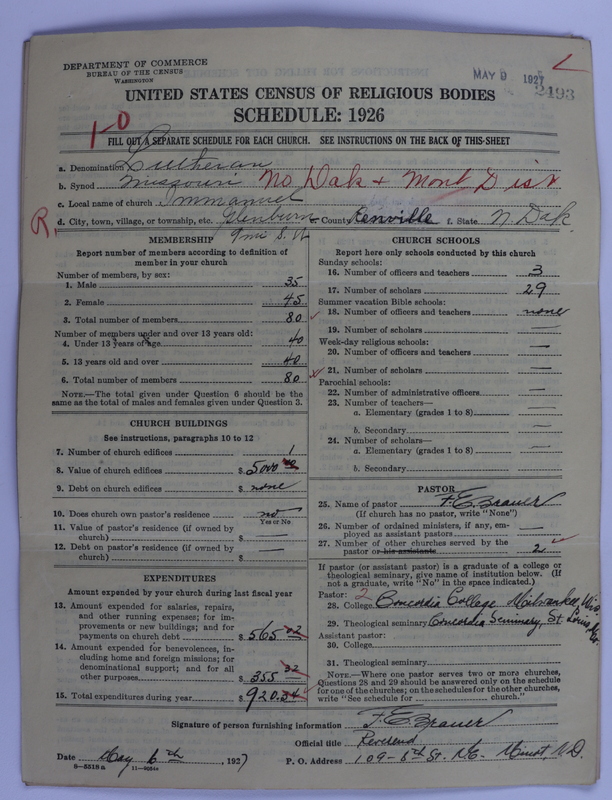 DEPARTMENT OF COMMERCE
BUREAU OF THE CENSUS
WASHINGTON
MAY 9 1927
2493
UNITED STATES CENSUS OF RELIGIOUS BODIES
SCHEDULE: 1926
1-0
FILL OUT A SEPARATE SCHEDULE FOR EACH CHURCH. SEE INSTRUCTIONS ON THE BACK OF THIS SHEET
a. Denomination Lutheran
b. Synod Missouri No Dak + Mont Dist
c. Local name of church Immanuel
R. d. City, town, village, or township, etc. Glenburn e. County Renville f. State N. Dak
9 mi S. W
MEMBERSHIP
Report number of members according to definition of
member in your church
Number of members, by sex:
1. Male 35
2. Female 45
3. Total number of members 80
Number of members under and over 13 years old:
4. Under 13 years of age 40
5. 13 years old and over 40
6. Total number of members 80
NOTE.—The total given under Question 6 should be
same as the total of males and females given under Question 3.
CHURCH BUILDINGS
See instructions, paragraphs 10 to 12
7. Number of church edifices 1
8. Value of church edifices $ 5000
9. Debt on church edifices $ none
10. Does church own pastor's residence no
Yes or No
11. Value of pastor's residence (if owned by
church) $ —
12. Debt on pastor's residence (if owned by
church) $ —
EXPENDITURES
Amount expended by your church during last fiscal year
13. Amount expended for salaries, repairs,
and other running expenses; for im-
provements or new buildings; and for
payments on church debt $ 565 02
14. Amount expended for benevolences, in-
cluding home and foreign missions; for
denominational support; and for all
other purposes $ 355 32
15. Total expenditures during year $ 920.34
CHURCH SCHOOLS
Report here only schools conducted by this church
Sunday schools:
16. Number of officers and teachers 3
17. Number of scholars 29
Summer vacation Bible schools:
18. Number of officers and teachers none
19. Number of scholars —
Week-day religious schools:
20. Number of officers and teachers —
21. Number of scholars —
Parochial schools:
22. Number of administrative officers —
23. Number of teachers—
a. Elementary (grades 1 to 8) —
b. Secondary —
24. Number of scholars—
a. Elementary (grades 1 to 8) —
b. Secondary —
PASTOR
25. Name of pastor F. E. Brauer
(If church has no pastor, write "None")
26. Number of ordained ministers, if any, em-
ployed as assistant pastors —
27. Number of other churches served by the
pastor or his assistants 2
If pastor (or assistant pastor) is a graduate of a college or
theological seminary, give name of institution below. (If
not a graduate, write "No" in the space indicated.)
Pastor: 2
28. College Concordia College Milwaukee, Wis.
29. Theological seminary Concordia Seminary, St. Louis, Mo.
Assistant pastor:
30. College
31. Theological seminary
NOTE.—Where one pastor serves two or more churches,
Questions 28 and 29 should be answered only on the schedule
for one of the churches; on the schedules for the other churches,
write "See schedule for church."
Signature of person furnishing information F. E. Brauer
Official title Reverend
Date May 6th, 1927 P. O. Address 109-5th St. N.E. Minot, N.D.
8—5518a 11—9054a